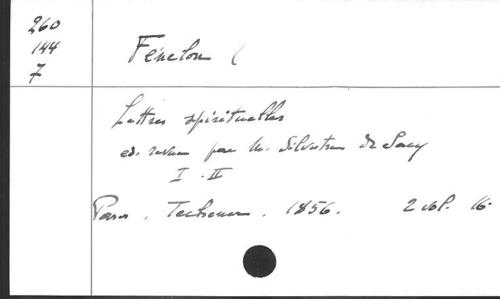 260
144
7
Fénelon (
Lettres spirituelles
ed. revue par M. Silvestre de Sacy
I - II
Paris, Techener, 1856. 2 vol. 16.